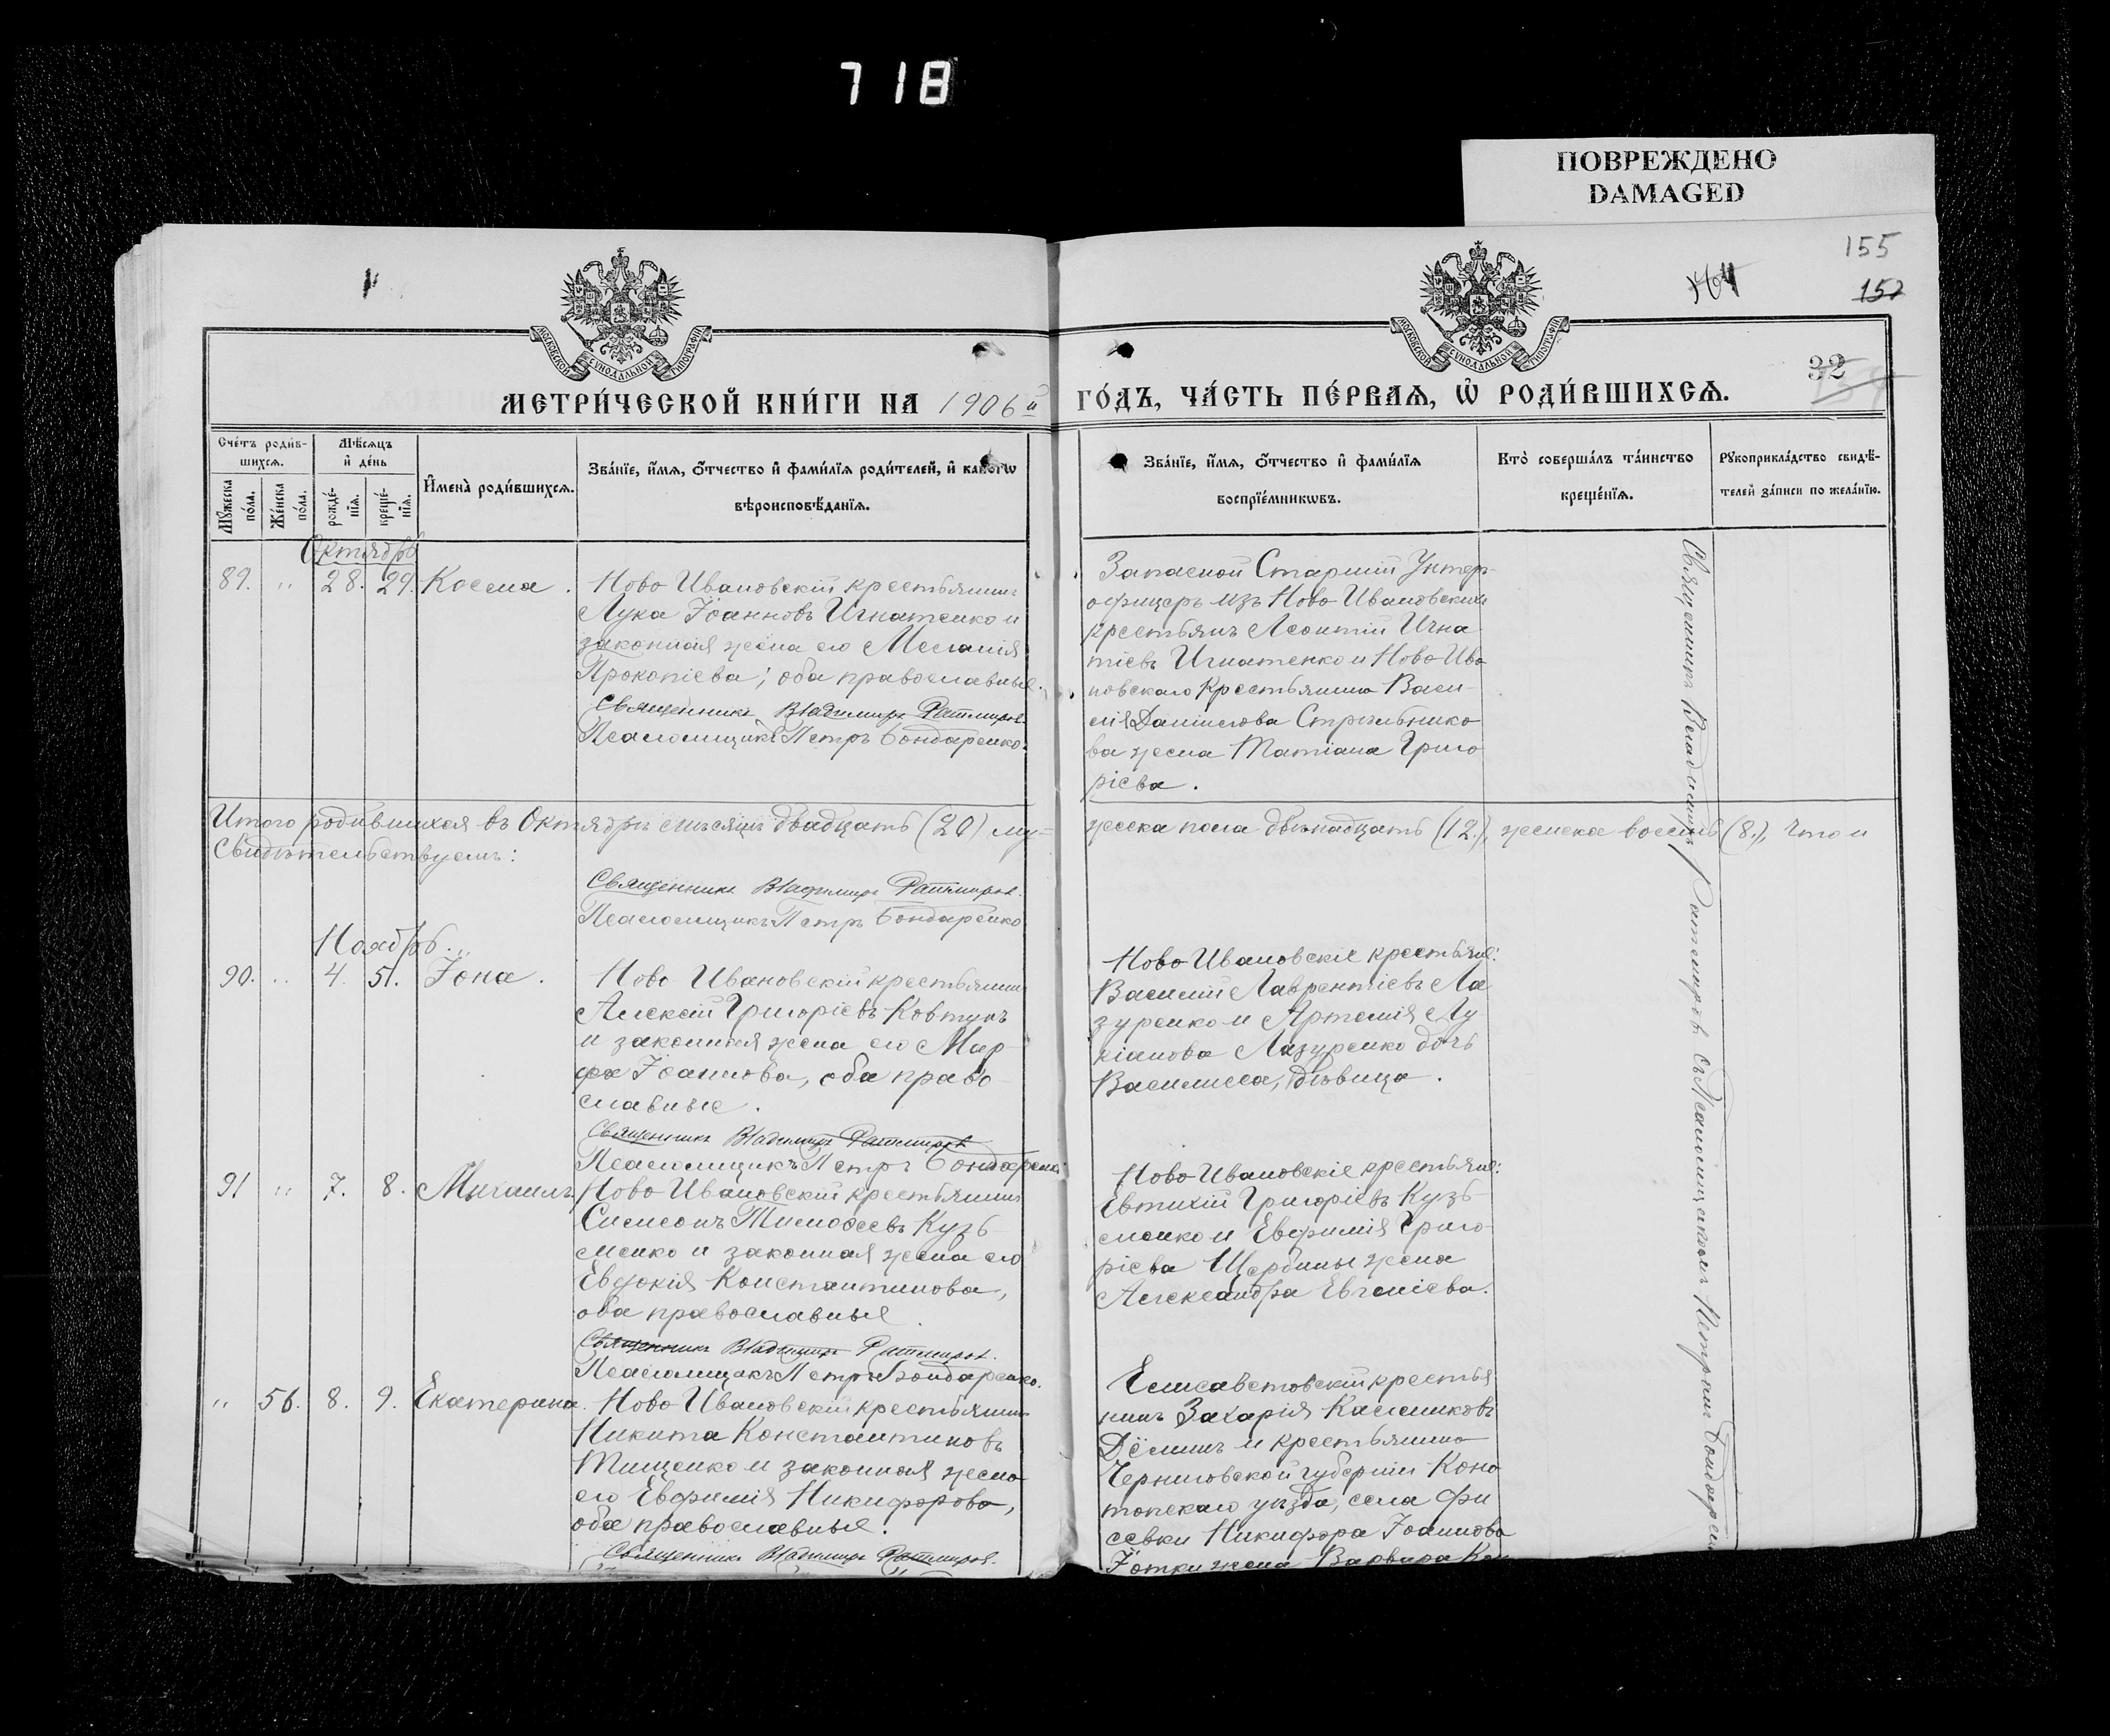 718
ПОВРЕЖДЕНО
DAMAGED
155
164
157
32
МОСКОВСКОЙ СѴНОДАЛЬНОЙ ТИПОГРАФІИ
МОСКОВСКОЙ СѴНОДАЛЬНОЙ ТИПОГРАФІИ
МЕТРИ́ЧЕСКОЙ КНИ́ГИ НА 1906й ГО́ДЪ, ЧА́СТЬ ПЕ́РВАѦ, Ѡ҆ РОДИ́ВШИХСѦ.
Сче́тъ роди́в-
шихсѧ.
Мѣ́сѧцъ
и҆ де́нь
Мꙋ́жеска
по́ла.
Же́нска
по́ла.
рожде́-
нїѧ.
креще́-
нїѧ.
И҆мена̀ роди́вшихсѧ.
Зва́нїе, и҆́мѧ, ѻ҆́тчество и҆ фами́лїѧ роди́телей, и҆ како́гѡ
вѣроисповѣ́данїѧ.
Зва́нїе, и҆́мѧ, ѻ҆́тчество и҆ фами́лїѧ
воспрїе́мникѡвъ.
Кто̀ соверша́лъ та́инство
креще́нїѧ.
Рꙋкоприкла́дство свидѣ́-
телей за́писи по жела́нїю.
Октябрь
89. „ 28. 29. Косма.
Ново Ивановскій крестьянинъ
Лука Іоанновъ Игнатенко и
законная жена его Меланія
Прокопіева; оба православные.
Священникъ Владимиръ Ратмировъ.
Псаломщикъ Петръ Бондаренко.
Запасной Старшій Унтер-
офицеръ изъ Ново Ивановскихъ
крестьянъ Леонтій Игна
тіевъ Игнатенко и Ново Ива
новскаго Крестьянина Васи-
лія Даниилова Стрѣльнико
ва жена Татіана Григо
ріева.
Итого родившихся въ Октябрѣ мѣсяцѣ двадцать (20) му-
жеска пола двѣнадцать (12), женска восемь (8.), что и
Свидѣтельствуемъ:
Священникъ Владимиръ Ратмировъ.
Псаломщикъ Петръ Бондаренко
Ноябрь.
90. „ 4. 5. Іона.
Ново Ивановскій крестьянинъ
Алексій Григоріевъ Ковтунъ
и законная жена его Мар-
фа Іоаннова, оба право-
славные.
Священникъ Владимиръ Ратмировъ
Псаломщикъ Петръ Бондаренко
Ново Ивановскіе крестьяне:
Василій Лаврентіевъ Ла
зуренко и Артемія Лу
кіанова Лазуренко дочь
Василисса, дѣвица.
91 „ 7. 8. Михаилъ.
Ново Ивановскій крестьянинъ
Симеонъ Тимоѳеевъ Кузь-
менко и законная жена его
Евдокія Константинова,
оба православные.
Священникъ Владимиръ Ратмировъ.
Псаломщикъ Петръ Бондаренко.
Ново Ивановскіе крестьяне:
Евтихій Григоріевъ Кузь-
менко и Евфимія Григо-
ріева Щербины жена
Александра Евгеніева.
„ 56. 8. 9. Екатерина.
Ново Ивановскій крестьянинъ
Никита Константиновъ
Тищенко и законная жена
его Евфимія Никифорова,
оба православные.
Священникъ Владимиръ Ратмировъ.
Елисаветовскій крестья
нинъ Захарія Каленниковъ
Дёминъ и крестьянина
Черниговской губерніи Коно
топскаго уѣзда, села Фи
севки Никифора Іоаннова
жена Варвара
Священникъ Владимиръ Ратмировъ съ Псаломщикомъ Петромъ Бондаренко